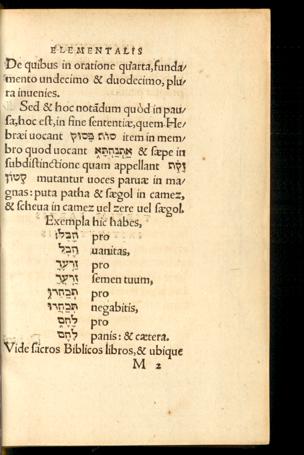 ELEMENTALIS
De quibus in oratione quarta, funda/
mento undecimo & duodecimo, plu/
ra inuenies.
Sed & hoc notãdum quòd in pau/
sa, hoc est, in fine sententiæ, quem He/
bræi uocant סוֹף פָּסוּק item in mem/
bro quod uocant אֶתְנַחְתָּא & sæpe in
subdistinctione quam appellant זָקֵף
קָטוֹן mutantur uoces paruæ in ma/
gnas: puta patha & sægol in camez,
& scheua in camez uel zere uel sægol.
Exempla hic habes,
pro
הֶבֶל uanitas,
זַרְעֶךָ pro
זַרְעֲךָ semen tuum,
pro
negabitis,
לָחֶם pro
לֶחֶם panis: & cætera.
Vide sacros Biblicos libros, & ubique
M 2